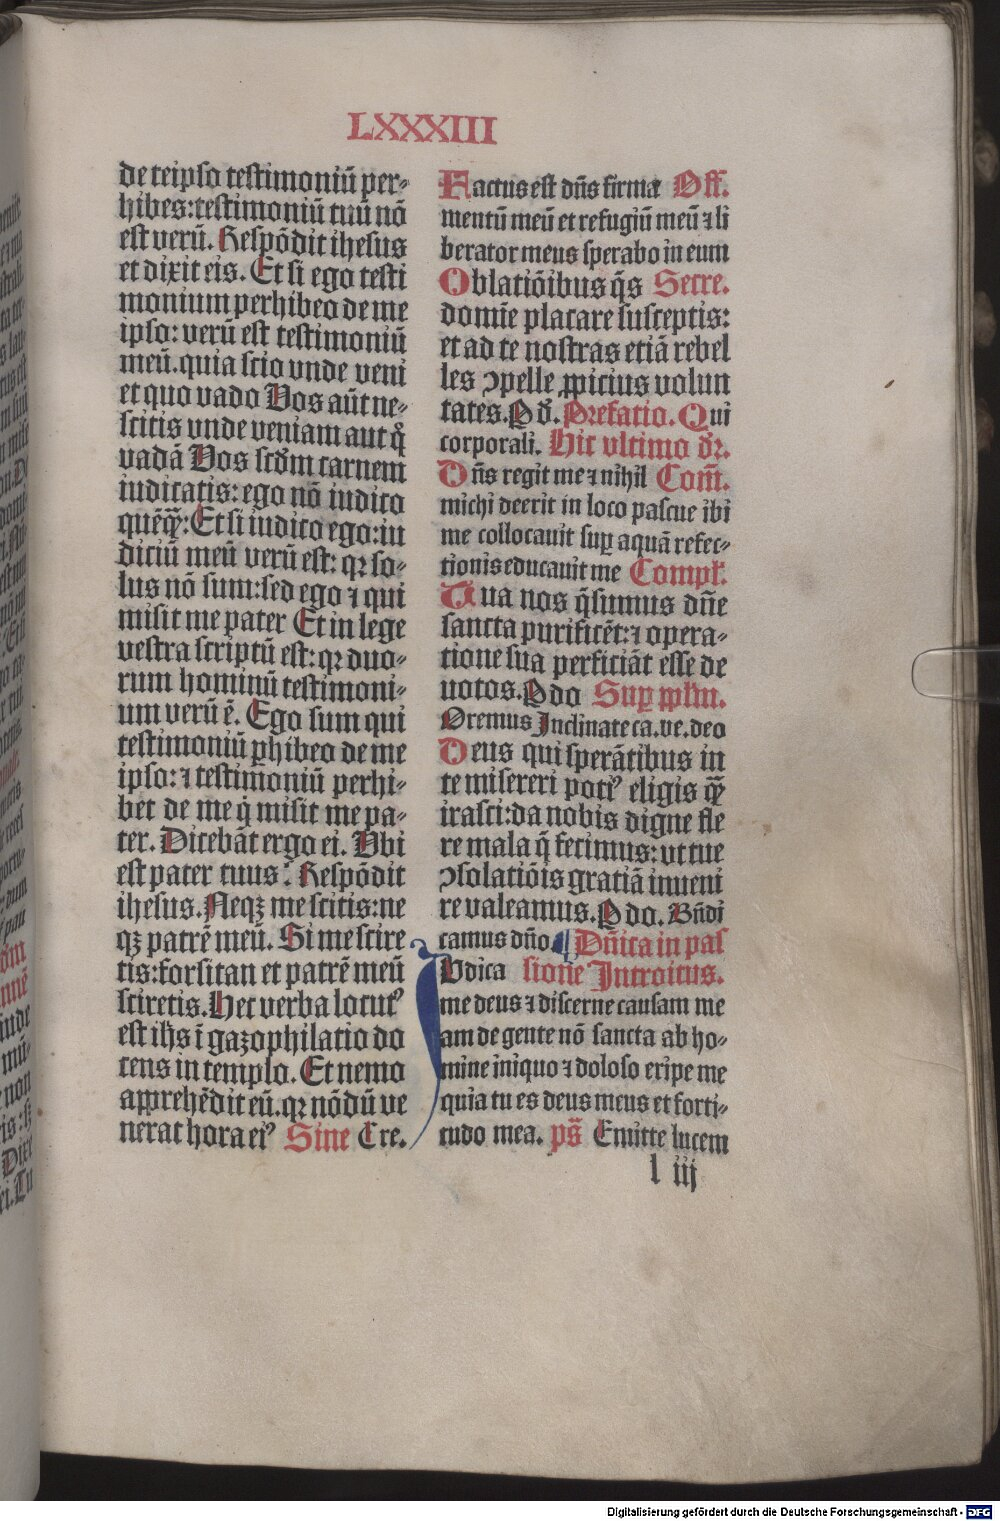 LXXXIII
de teipso testimoniū per-
hibes: testimoniū tuū nō
est verū. Respōdit ihesus
et dixit eis. Et si ego testi
monium perhibeo de me
ipso: verū est testimoniū
meū. quia scio vnde veni
et quo vado Vos aūt ne-
scitis vnde veniam aut q̊
vadā Vos scd̄m carnem
iudicatis: ego nō iudico
quēqꝫ: Et si iudico ego: iu
diciū meū verū est: qꝛ so-
lus nō sum: sed ego ⁊ qui
misit me pater Et in lege
vestra scriptū est: qꝛ duo-
rum hominū testimoni-
um verū ē. Ego sum qui
testimoniū ꝑhibeo de me
ipso: ⁊ testimoniū perhi-
bet de me q̇ misit me pa-
ter. Dicebāt ergo ei. Vbi
est pater tuus. Respōdit
ihesus. Neqꝫ me scitis: ne
qꝫ patrē meū. Si me scire
tis: forsitan et patrē meū
sciretis. Hec verba locutꝰ
est ih̄s ī gazophilatio do
cens in templo. Et nemo
apprehēdit eū. qꝛ nōdū ve
nerat hora eiꝰ Sine Cre.
Factus est dn̄s firma Off.
mentū meū et refugiū meū ⁊ li
berator meus sperabo in eum
Oblatiōibus q̄s Secre.
domīe placare susceptis:
et ad te nostras etiā rebel
les ꝯpelle ꝓpicius volun
tates. P d̄. Prefatio. Qui
corporali. Hic vltimo d̄r.
Dn̄s regit me ⁊ nihil Com̄.
michi deerit in loco pascue ibi
me collocauit suꝑ aquā refec-
tionis educauit me Compl̄.
Tua nos q̄sumus dn̄e
sancta purificēt: ⁊ opera-
tione sua perficiāt esse de
uotos. P do Suꝑ ppl̄m.
Oremus Inclinate ca. ve. deo
Deus qui sperātibus in
te misereri potiꝰ eligis qꝫ̄
irasci: da nobis digne fle
re mala q̄ fecimus: vt tue
ꝯsolatiōis gratiā inueni
re valeamus. P do. Bn̄di
camus dn̄o ¶ Dn̄ica in pas
Vdica sione Introitus.
me deus ⁊ discerne causam me
am de gente nō sancta ab ho-
mine iniquo ⁊ doloso eripe me
quia tu es deus meus et forti-
tudo mea. ps̄ Emitte lucem
l iij
Digitalisierung gefördert durch die Deutsche Forschungsgemeinschaft - DFG